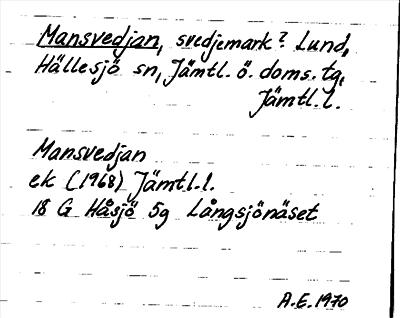 Mansvedjan, svedjemark? Lund,
Hällesjö sn, Jämtl. ö. doms. tg,
Jämtl. l.
Mansvedjan
ek (1968) Jämtl. l.
18 G Håsjö 5g Långsjönäset
A.E. 1970